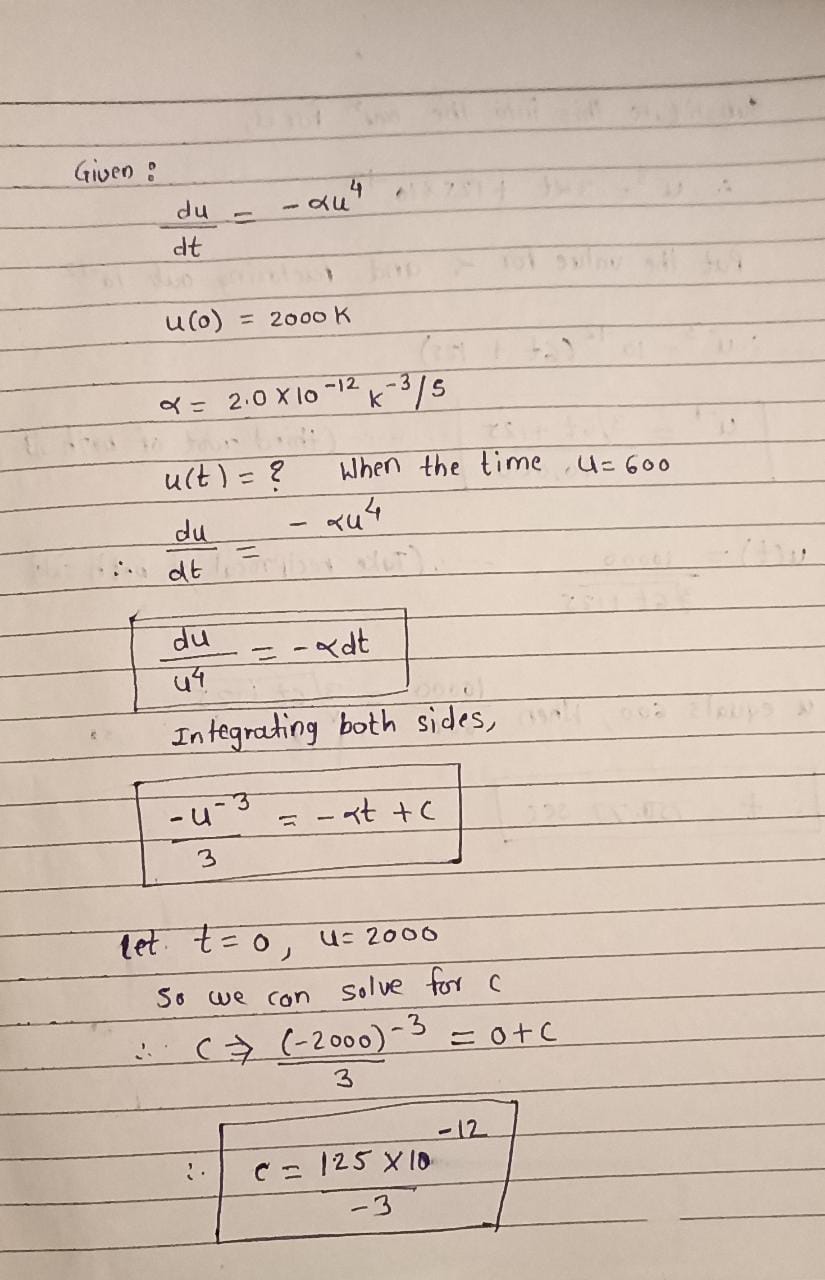 Given :
du/dt = -αu⁴
u(0) = 2000 K
α = 2.0 X 10⁻¹² K⁻³/S
u(t) = ? When the time, u = 600
∴ du/dt = -αu⁴
du/u⁴ = -αdt
Integrating both sides,
-u⁻³/3 = -αt + c
let. t = 0, u = 2000
So we can solve for c
∴ c ⇒ (-2000)⁻³/3 = 0 + c
∴ c = 125 X 10⁻¹²/-3